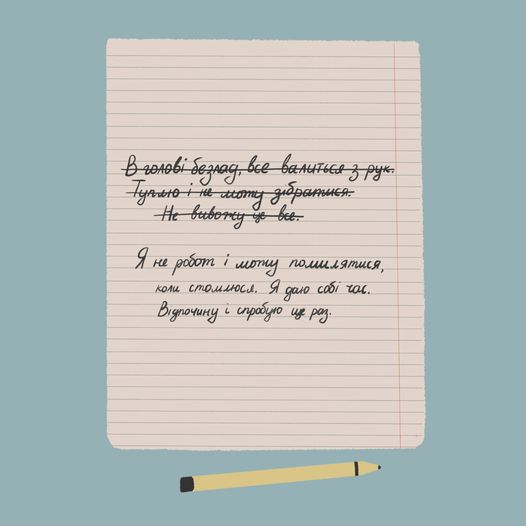 В голові безлад, все валиться з рук.
Туплю і не можу зібратися.
Не вивожу це все.
Я не робот і можу помилятися,
коли стомлюся. Я даю собі час.
Відпочину і спробую ще раз.